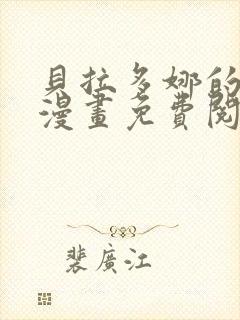 貝拉多娜的
漫畫免費閱
裴廣江